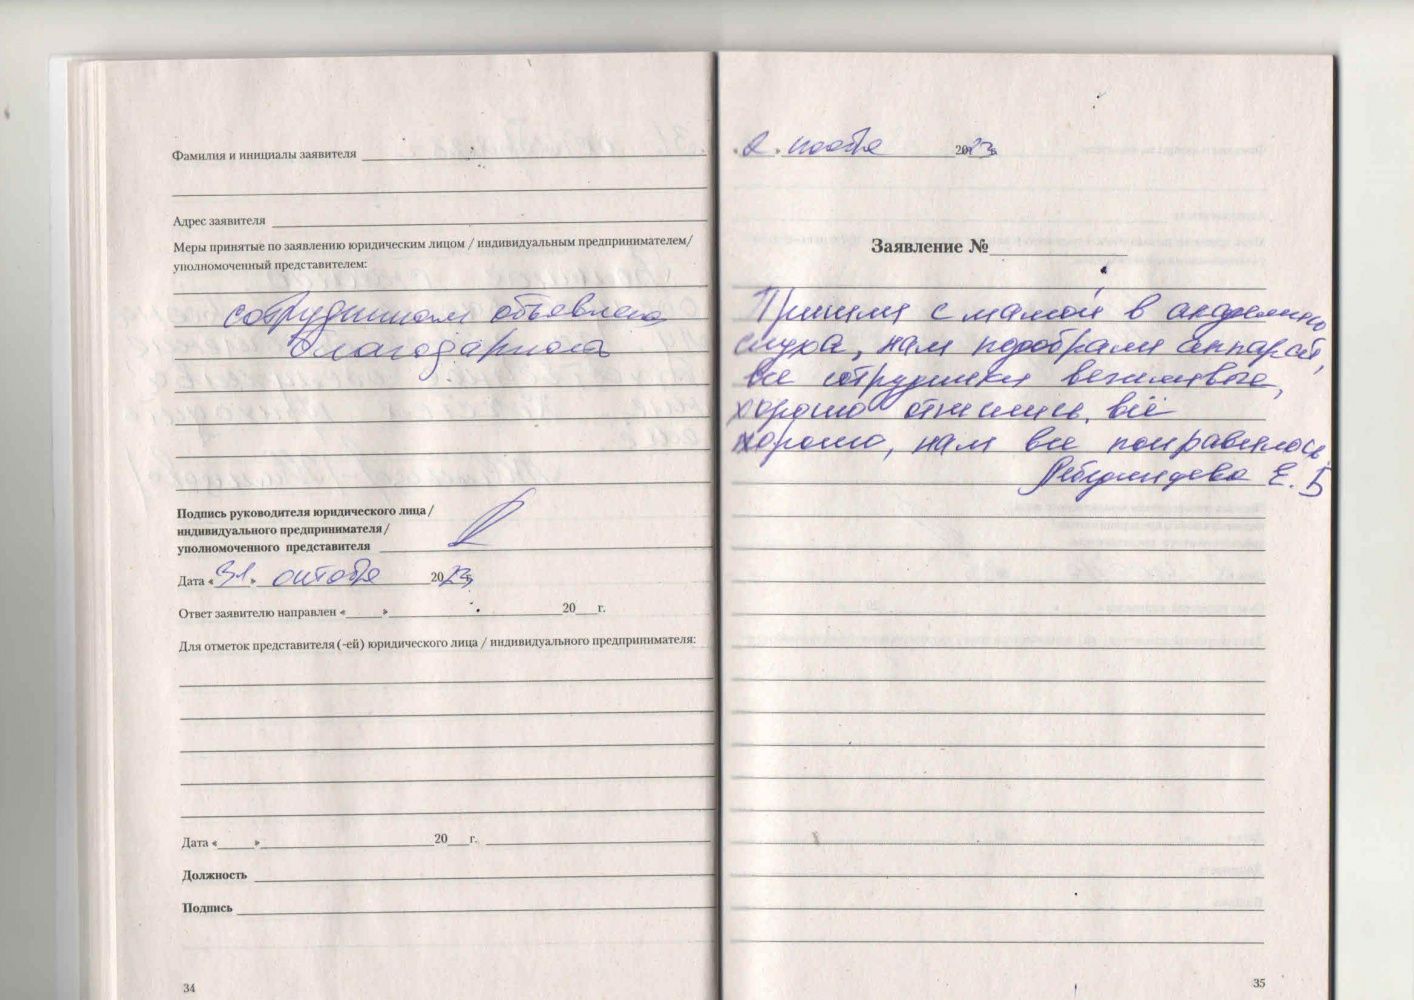 Фамилия и инициалы заявителя
Адрес заявителя
Меры принятые по заявлению юридическим лицом / индивидуальным предпринимателем/
уполномоченный представителем:
сотрудникам объявлена
благодарность
Подпись руководителя юридического лица /
индивидуального предпринимателя /
уполномоченного представителя
Дата « 31 » октября 2023г.
Ответ заявителю направлен « » 20 г.
Для отметок представителя (-ей) юридического лица / индивидуального предпринимателя:
Дата « » 20 г.
Должность
Подпись
34
« 2 » ноября 2023г.
Заявление №
Пришли с мамой в академию
слуха, нам подобрали аппарат,
все сотрудники вежливые,
хорошо отнеслись, всё
хорошо, нам все понравилось
Е. Б
35